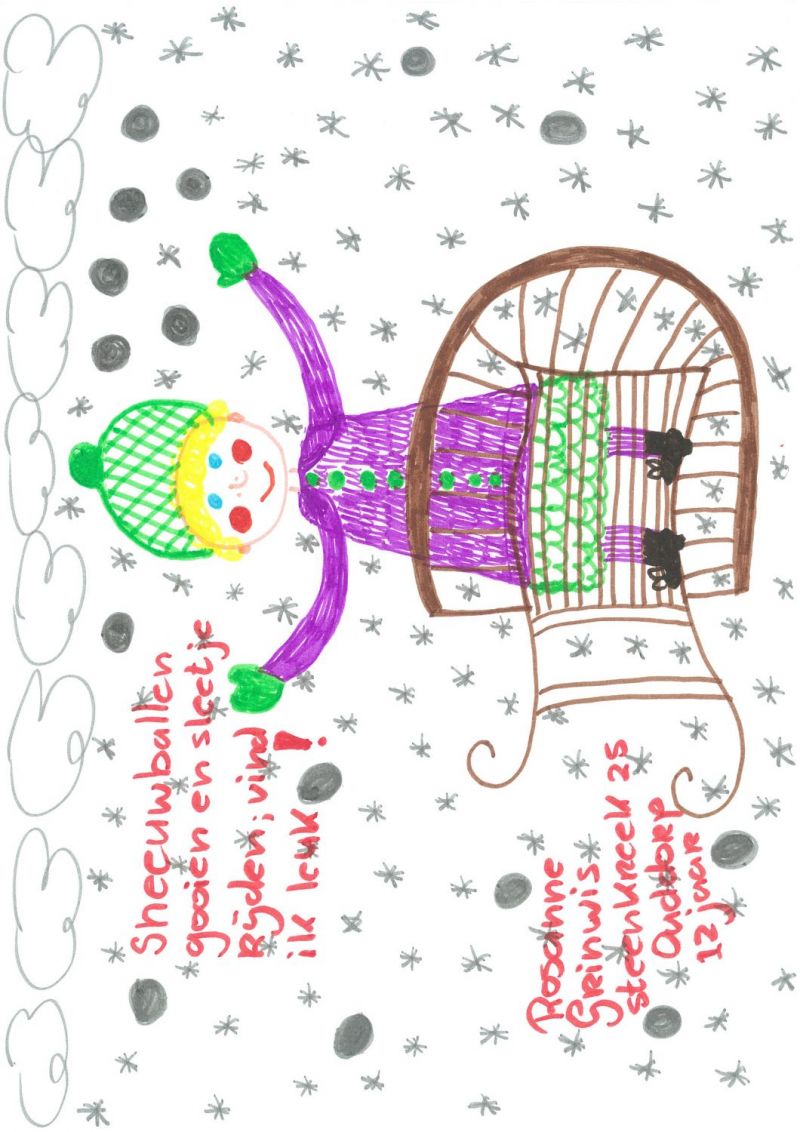 Sneeuwballen
gooien en sleetje
Rijden; vind
ik leuk!
Rosanne
Grinwis
steenkreek 25
Ouddorp
12 jaar